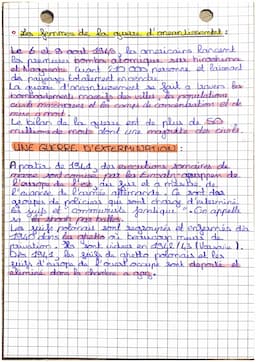 • Les femmes de la guerre d'anéantissement :
Le 6 et 9 août 1945, les américains lancent
la première bombe atomique sur hiroshima
et Nagasaki tuant personnes et laissant
des paysages totalement en cendre.
La guerre d'anéantissement se fait à travers les
bombardements massifs des villes, les populations
civils et les camps de concentration et de
mise à mort.
Le bilan de la guerre est de plus de 50
millions de morts dont une majorité des civils.
UNE GUERRE D'EXTERMINATION :
A partir de 1941, des exécutions
de masse sont commise par les Einsatzgruppen de
l'europe de l'est, au fur et à mesure de
l'avancé de l'armée allemande. Ce sont des
groupes de policiers qui sont chargé d'exterminé
les juifs et "communiste fanatique". On appelle
sa la shoah par balles.
Les juifs polonais sont regroupés et enfermés dès
1940 dans les ghettos où beaucoup meurs de
privation. Ils sont vidés en 1942/43 (Varsovie).
Dès 1942, les juifs de ghetto polonais et les
juifs d'europe de l'ouest occupé sont déporté et
éliminé dans la chambre a gaz.